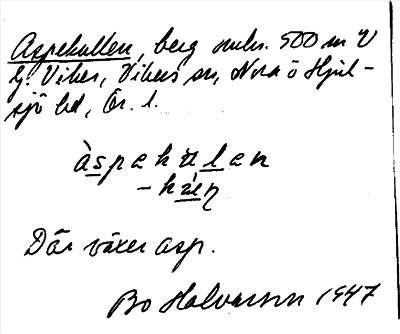 Aspekullen, berg omkr. 500 m V
g. Viker, Vikers sn, Nora o Hjul-
sjö bd, Ör. l.
àspekulen
- k
Där växer asp.
Bo Halvarson 1947